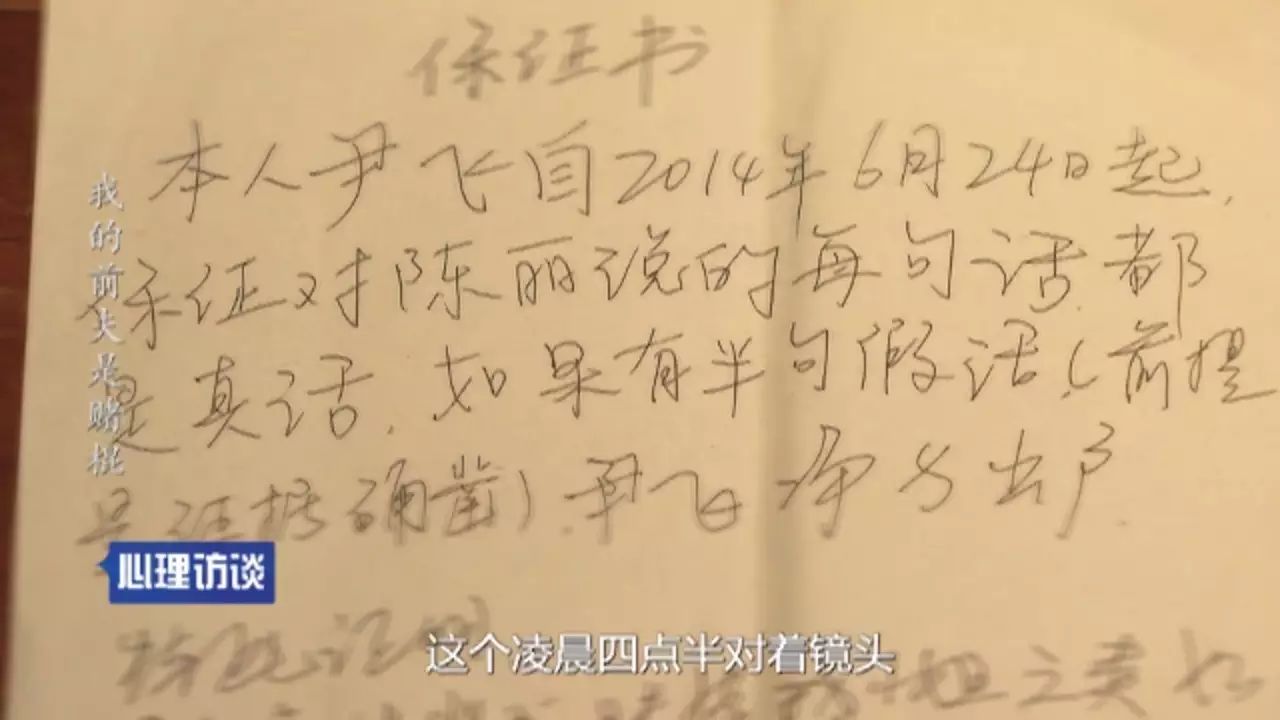 保证书
本人尹飞自2014年6月24日起,
保证对陈丽说的每句话都
是真话.如果有半句假话(前提
是证据确凿).尹飞净身出户.
我的前夫是赌棍
心理访谈
特此证明
这个凌晨四点半对着镜头